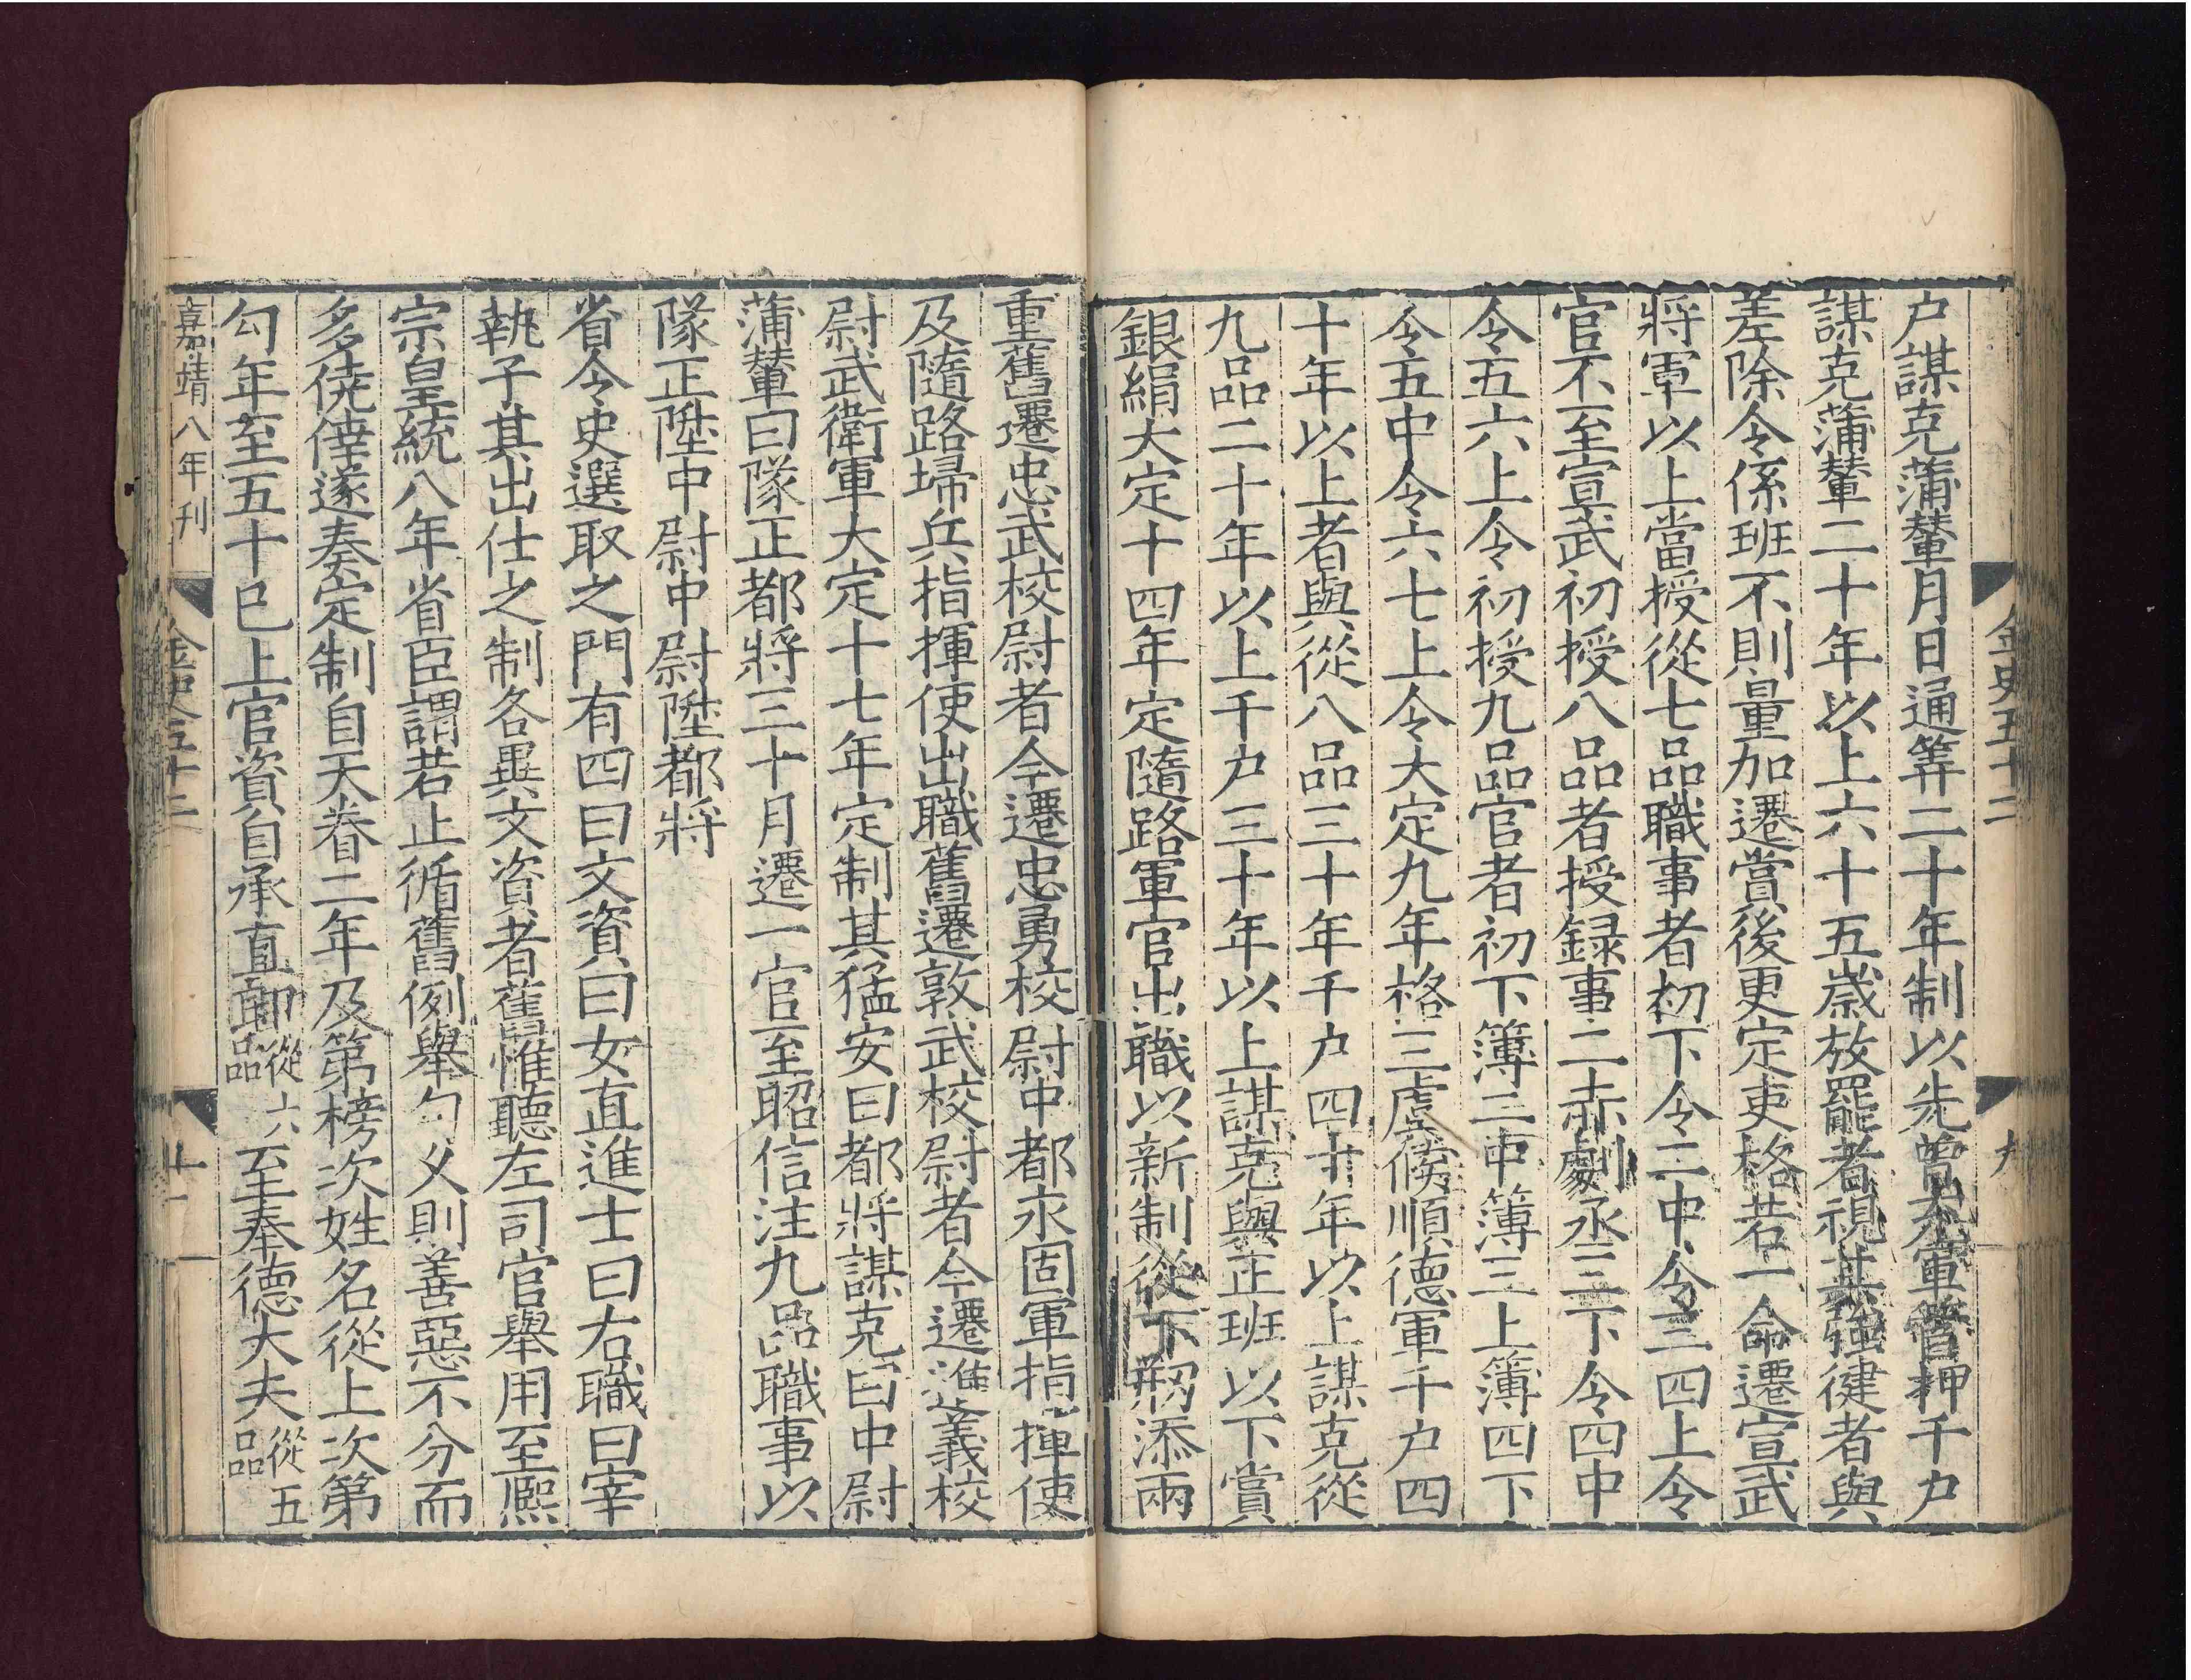 金史五十二
九
户謀克蒲輦月日通筭二十年制以先曾充軍管押千户
謀克蒲輦二十年以上六十五歲放罷者視其強健者與
差除令係班不則量加遷賞後更定吏格若一命遷宣武
將軍以上當授從七品職事者初下令二中令三四上令
官不至宣武初授八品者授録事二赤劇丞三下令四中
令五六上令初授九品官者初下簿二中簿三上簿四下
令五中令六七上令大定九年格三虞候順德軍千户四
十年以上者與從八品三十年千户四十年以上謀克從
九品二十年以上千户三十年以上謀克與正班以下賞
銀絹大定十四年定隨路軍官出職以新制從下剏添兩
重舊遷忠武校尉者今遷忠勇校尉中都永固軍指揮使
及隨路埽兵指揮使出職舊遷敦武校尉者今遷進義校
尉武衛軍大定十七年定制其猛安曰都將謀克曰中尉
蒲輦曰隊正都將三十月遷一官至昭信注九品職事以
隊正陞中尉中尉陞都將
省令史選取之門有四曰文資曰女直進士曰右職曰宰
執子其出仕之制各異文資者舊惟聽左司官舉用至熙
宗皇統八年省臣謂若止循舊例舉勾乂則善惡不分而
多僥倖遂奏定制自天眷二年及第榜次姓名從上次第
勾年至五十已上官資自承直郎從六品至奉德大夫從五品
嘉靖八年刊
金史五十二
十一